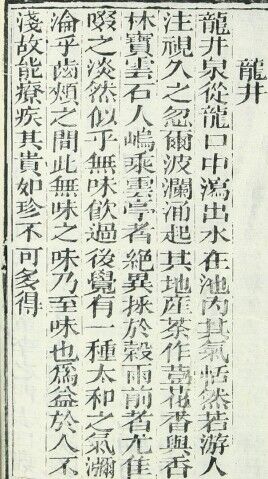 龍井
龍井泉從龍口中瀉出水在池內其氣恬然若游人
注視久之忽爾波瀾涌起其地產茶作荳花香與香
林寶雲石人嶋乘雲亭者絕異採於穀雨前者尤佳
啜之淡然似乎無味飲過後覺有一種太和之氣瀰
淪乎齒頰之間此無味之味乃至味也為益於人不
淺故能療疾其貴如珍不可多得